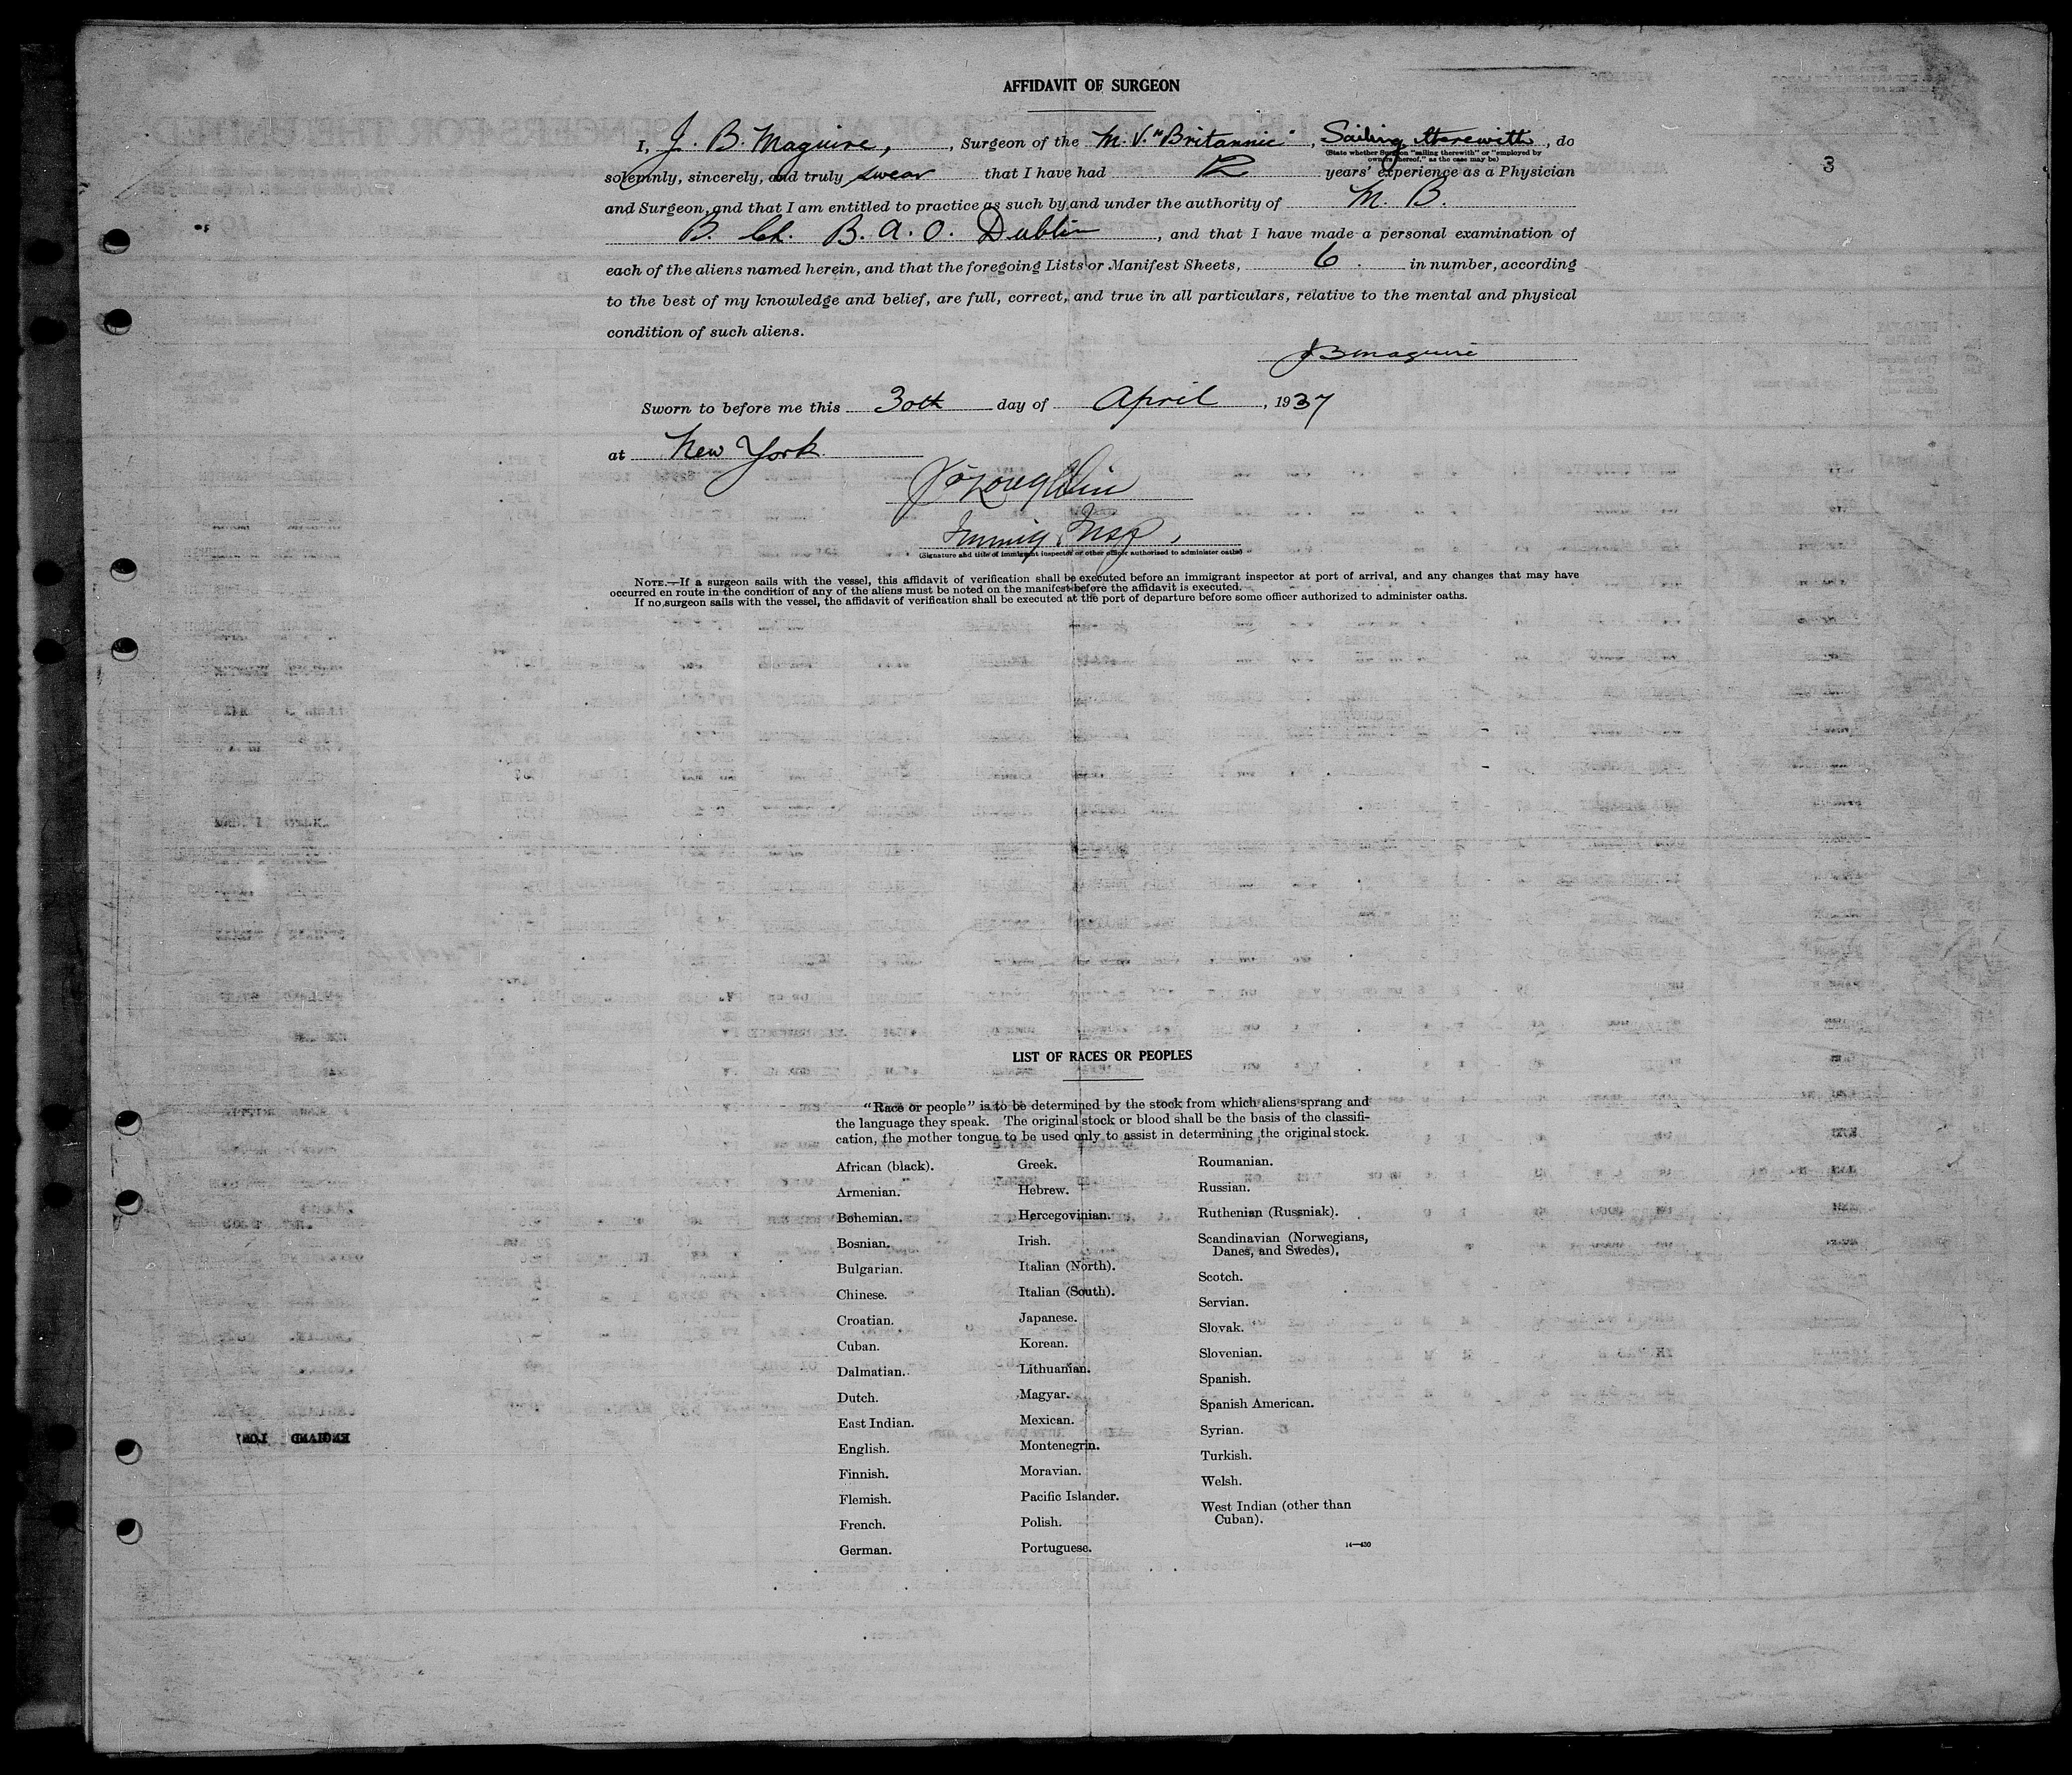 AFFIDAVIT OF SURGEON
I, J. B. Maguire, , Surgeon of the M.V. "Britannic" , Sailing therewith , do
(State whether Surgeon "sailing therewith" or "employed by
owners thereof," as the case may be)
3
solemnly, sincerely, and truly swear that I have had 12 years' experience as a Physician
and Surgeon, and that I am entitled to practice as such by and under the authority of M. B.
B. Ch. B. A. O. Dublin , and that I have made a personal examination of
each of the aliens named herein, and that the foregoing Lists or Manifest Sheets, 6 . in number, according
to the best of my knowledge and belief, are full, correct, and true in all particulars, relative to the mental and physical
condition of such aliens.
J B Maguire
Sworn to before me this 30th day of April , 1937
at New York.
Immig. Insp.
(Signature and title of immigrant inspector or other officer authorized to administer oaths)
NOTE.—If a surgeon sails with the vessel, this affidavit of verification shall be executed before an immigrant inspector at port of arrival, and any changes that may have
occurred en route in the condition of any of the aliens must be noted on the manifest before the affidavit is executed.
If no surgeon sails with the vessel, the affidavit of verification shall be executed at the port of departure before some officer authorized to administer oaths.
LIST OF RACES OR PEOPLES
"Race or people" is to be determined by the stock from which aliens sprang and
the language they speak. The original stock or blood shall be the basis of the classifi-
cation, the mother tongue to be used only to assist in determining the original stock.
African (black).
Armenian.
Bohemian.
Bosnian.
Bulgarian.
Chinese.
Croatian.
Cuban.
Dalmatian.
Dutch.
East Indian.
English.
Finnish.
Flemish.
French.
German.
Greek.
Hebrew.
Hercegovinian.
Irish.
Italian (North).
Italian (South).
Japanese.
Korean.
Lithuanian.
Magyar.
Mexican.
Montenegrin.
Moravian.
Pacific Islander.
Polish.
Portuguese.
Roumanian.
Russian.
Ruthenian (Russniak).
Scandinavian (Norwegians,
Danes, and Swedes).
Scotch.
Servian.
Slovak.
Slovenian.
Spanish.
Spanish American.
Syrian.
Turkish.
Welsh.
West Indian (other than
Cuban).
14—430